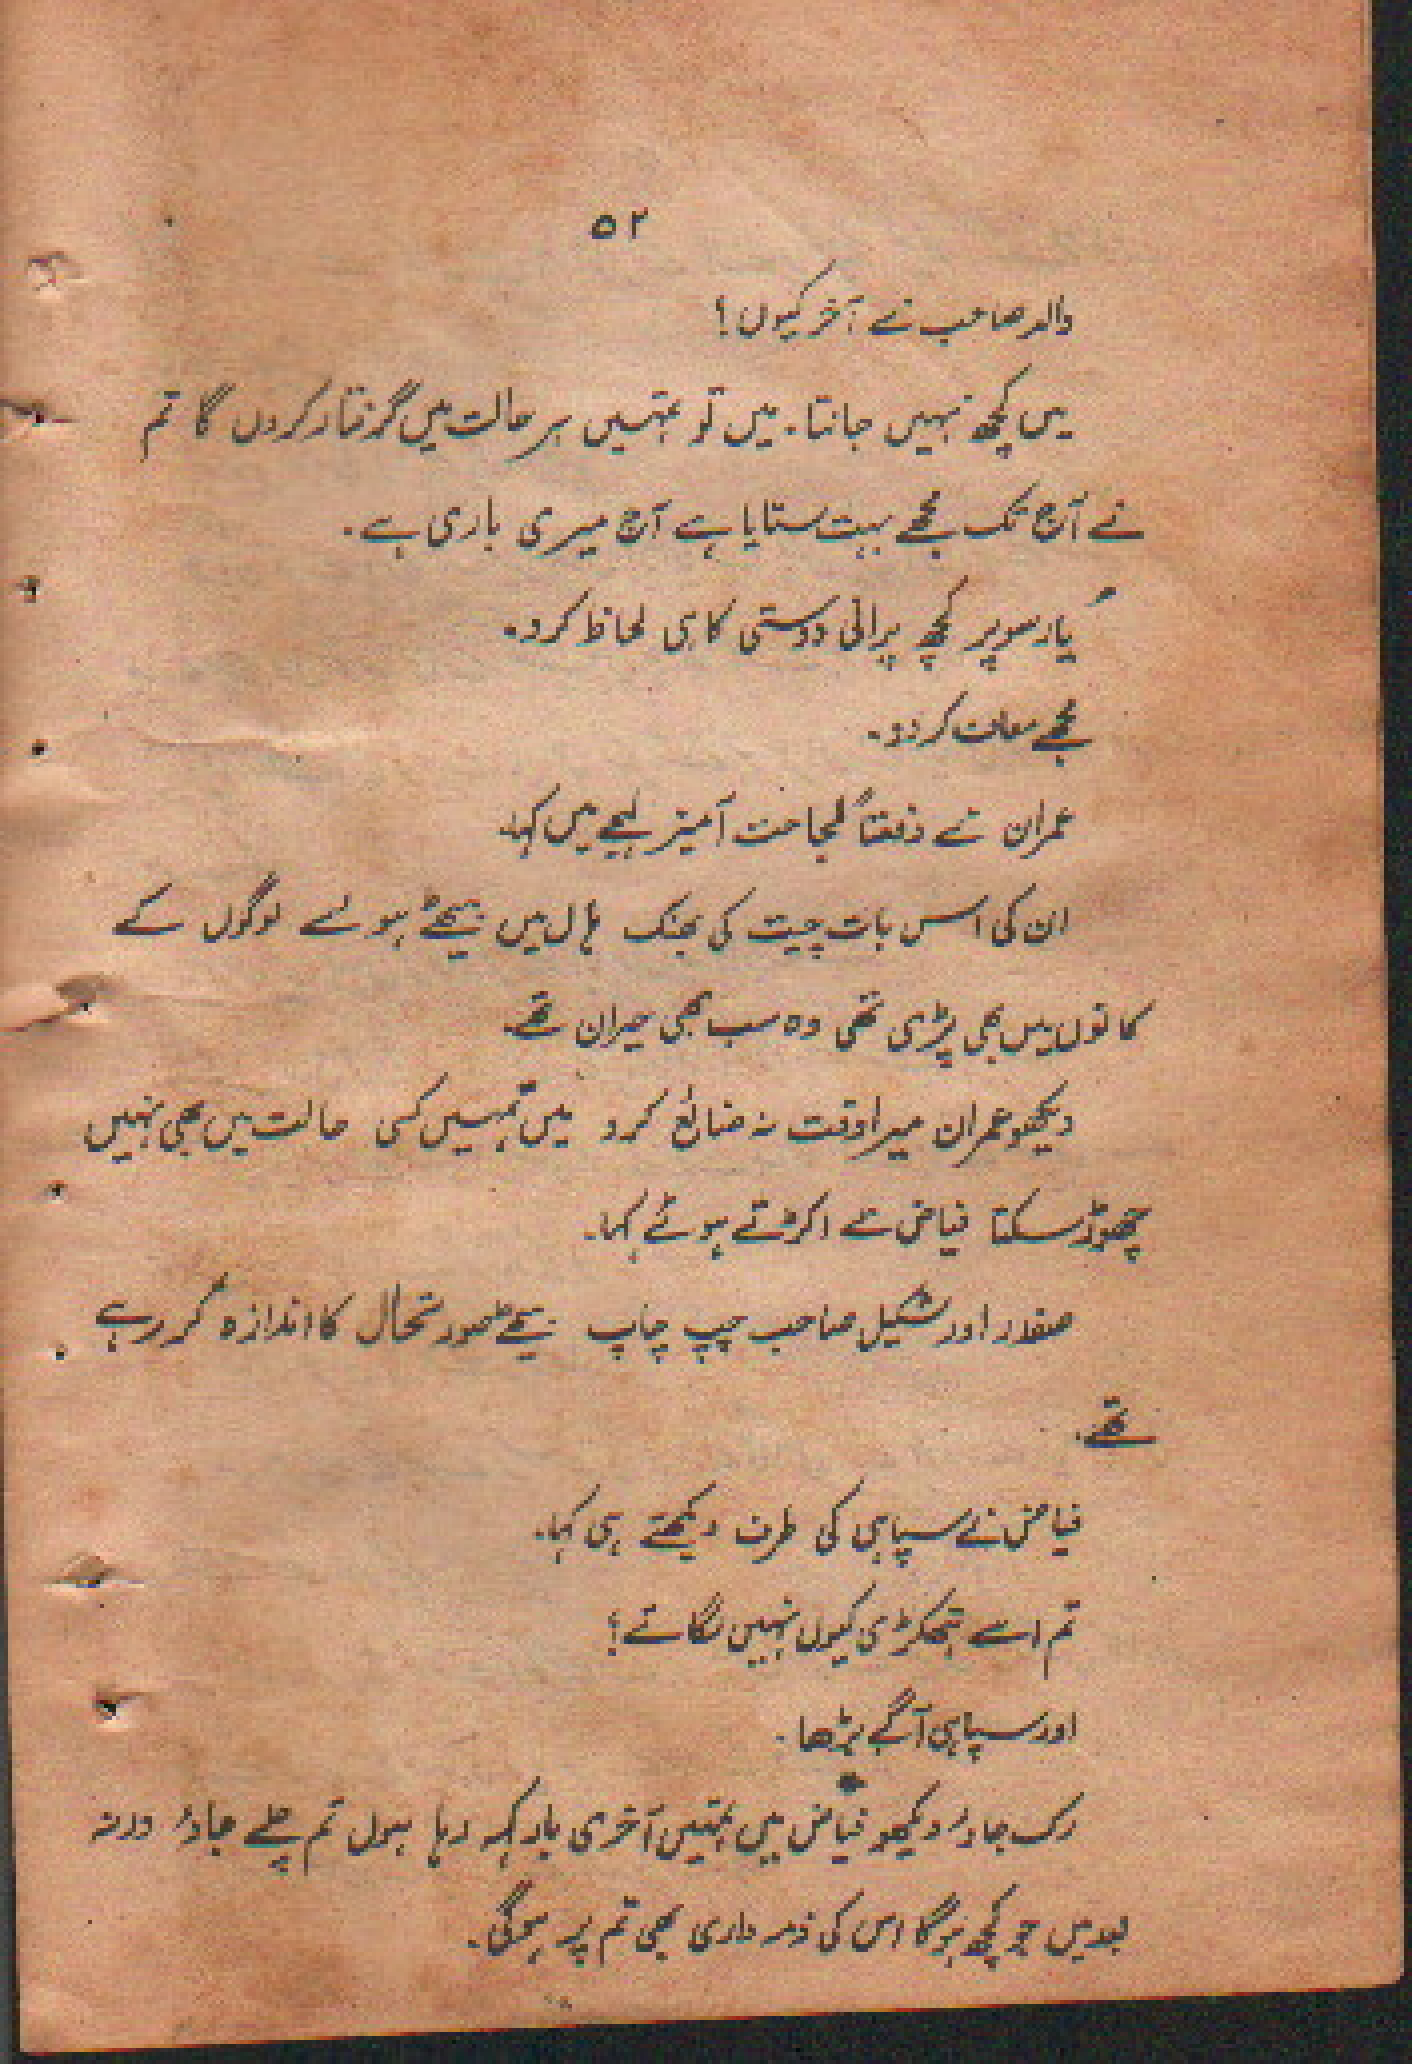 ۵۲
والد صاحب نے آخر کیوں؟
میں کچھ نہیں جانتا۔ میں تو تمہیں ہر حالت میں گرفتار کروں گا تم
نے آج تک مجھے بہت ستایا ہے آج میری باری ہے۔
یار سوپر کچھ پرانی دوستی کا ہی لحاظ کرو۔
مجھے معاف کر دو۔
عمران نے دفعتاً لجاجت آمیز لہجے میں کہا۔
ان کی اس بات چیت کی بھنک ہال میں بیٹھے ہوئے لوگوں کے
کانوں میں بھی پڑی تھی وہ سب بھی حیران تھے۔
دیکھو عمران میرا وقت نہ ضائع کرو میں تمہیں کسی حالت میں بھی نہیں
چھوڑ سکتا فیاض نے اکڑتے ہوئے کہا۔
صفدر اور شکیل صاحب چپ چاپ بیٹھے صورتحال کا اندازہ کر رہے
تھے۔
فیاض نے سپاہی کی طرف دیکھتے ہی کہا۔
تم اسے ہتھکڑی کیوں نہیں لگاتے؟
اور سپاہی آگے بڑھا۔
رک جاؤ دیکھو فیاض میں تمہیں آخری بار کہہ رہا ہوں تم چلے جاؤ ورنہ
بعد میں جو کچھ ہوگا اس کی ذمہ داری بھی تم پر ہوگی۔